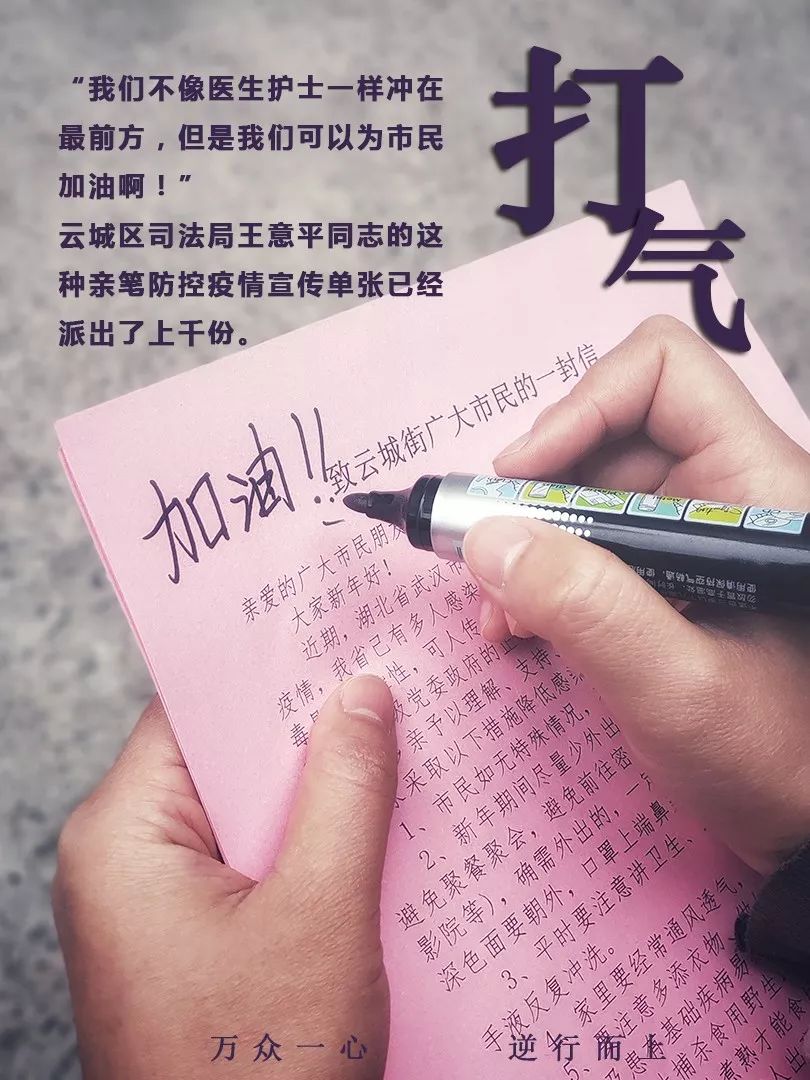 打气
“我们不像医生护士一样冲在
最前方，但是我们可以为市民
加油啊！”
云城区司法局王意平同志的这
种亲笔防控疫情宣传单张已经
派出了上千份。
加油!!
致云城街广大市民的一封信
亲爱的广大市民朋友
大家新年好！
近期，湖北省武汉市
疫情，我省已有多人感染
毒 性，可人传
级党委政府的正
亲予以理解、支持、
采取以下措施降低感染
1、市民如无特殊情况，
2、新年期间尽量少外出
避免聚餐聚会，避免前往密
影院等），确需外出的，一定
深色面要朝外，口罩上端鼻
3、平时要注意讲卫生、
手液反复冲洗。
家里要经常通风透气，
要注意多添衣物
及患基础疾病易
捕杀食用野生
煮熟才能食
万众一心 逆行而上